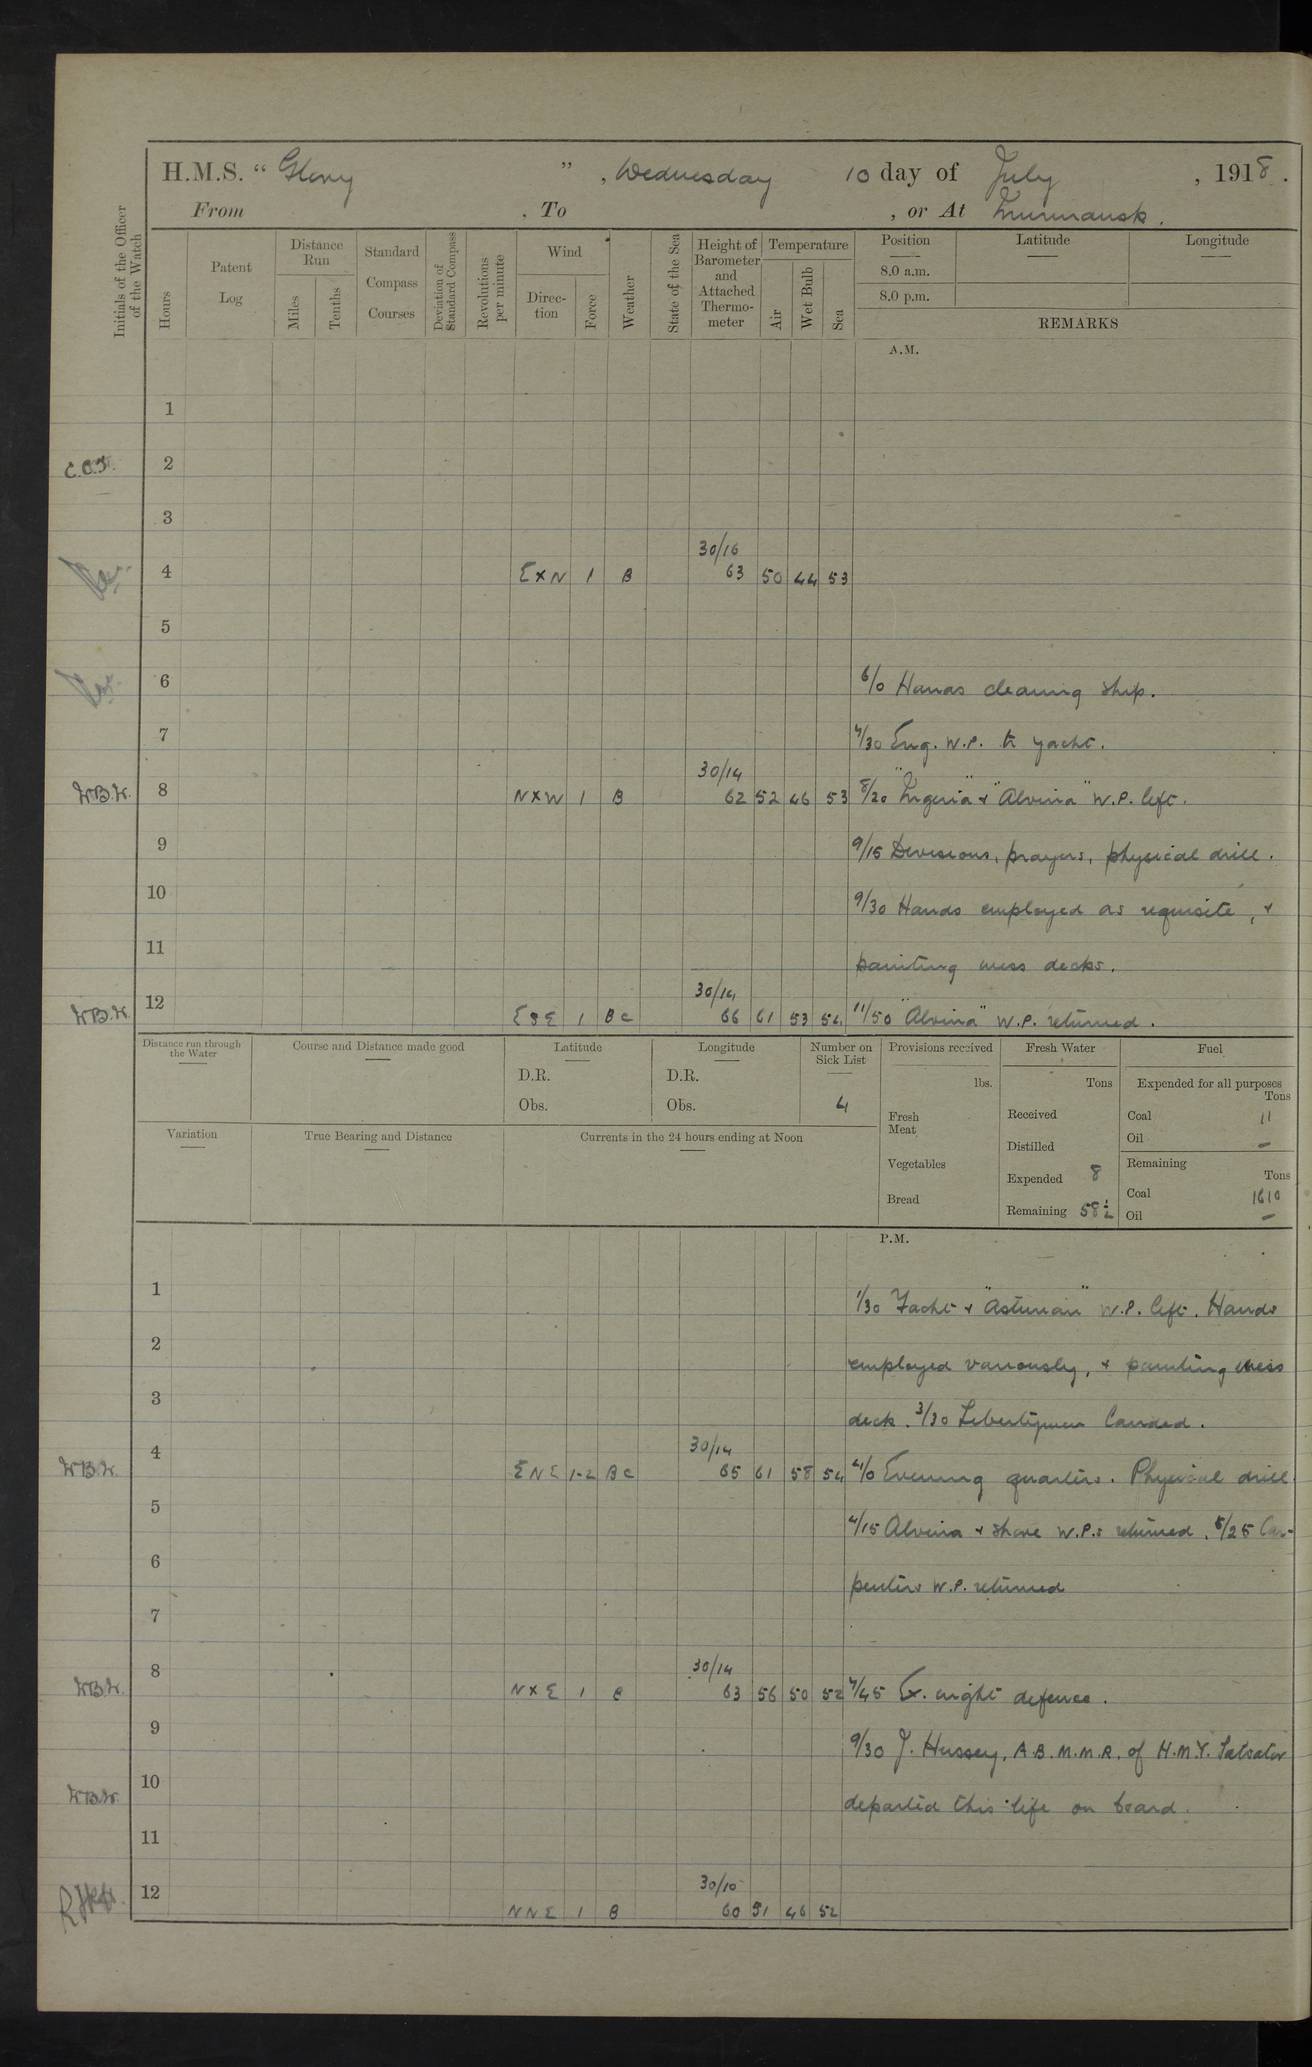 H.M.S. "Glory", Wednesday 10 day of July, 1918.
From , To , or At Murmansk.
Initials of the Officer of the Watch
Hours
Patent Log
Distance Run
Miles
Tenths
Standard Compass Courses
Deviation of Standard Compass
Revolutions per minute
Wind
Direction
Force
Weather
State of the Sea
Height of Barometer and Attached Thermometer
Temperature
Air
Wet Bulb
Sea
Position Latitude Longitude
8.0 a.m.
8.0 p.m.
REMARKS
A.M.
1
C.C.F. 2
3
30/16
4 E x N 1 B 63 50 44 53
5
6 6/0 Hands cleaning ship.
7 7/30 Eng. W.P. to yacht.
30/14
W.B.W. 8 N x W 1 B 62 52 46 53 8/20 "Nigeria" & "Alvina" W.P. left.
9 9/15 Divisions, prayers, physical drill.
10 9/30 Hands employed as requisite, &
11 painting mess decks.
30/14
W.B.W. 12 ESE 1 BC 66 61 53 54 11/50 "Alvina" W.P. returned.
Distance run through the Water
Course and Distance made good
Latitude
D.R.
Obs.
Longitude
D.R.
Obs.
Number on Sick List
4
Provisions received
lbs.
Fresh Meat
Vegetables
Bread
Fresh Water
Tons
Received
Distilled
Expended 8
Remaining 58½
Fuel
Expended for all purposes
Tons
Coal 11
Oil —
Remaining
Tons
Coal 1610
Oil —
Variation
True Bearing and Distance
Currents in the 24 hours ending at Noon
P.M.
1 1/30 Yacht & "Asturian" W.P. left. Hands
2 employed variously, & painting mess
3 deck. 3/30 Libertymen landed.
30/14
W.B.W. 4 ENE 1-2 BC 65 61 58 54 4/0 Evening quarters. Physical drill
5 4/15 Alvina & shore W.P.s returned. 5/25 Car-
6 penters W.P. returned
7
30/14
W.B.W. 8 N x E 1 C 63 56 50 52 7/45 Ex. night defence.
9 9/30 J. Hussey, A.B. M.M.R. of H.M.Y. Salvator
W.B.W. 10 departed this life on board.
11
30/10
12 NNE 1 B 60 51 46 52